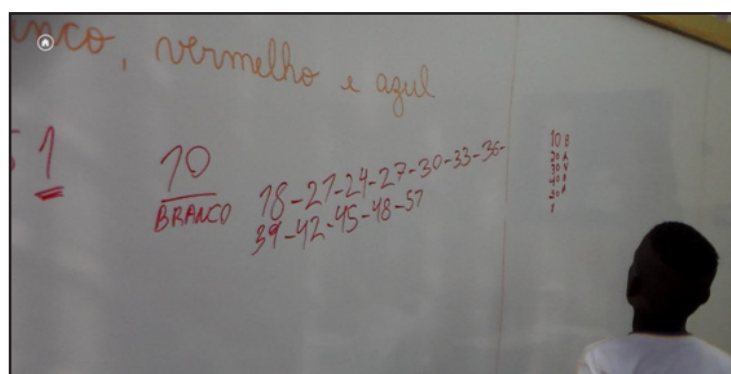 nco, vermelho e azul
1
10
BRANCO
18-21-24-27-30-33-36-
39-42-45-48-51
10 B
20 A
30 V
40 B
50 A
1